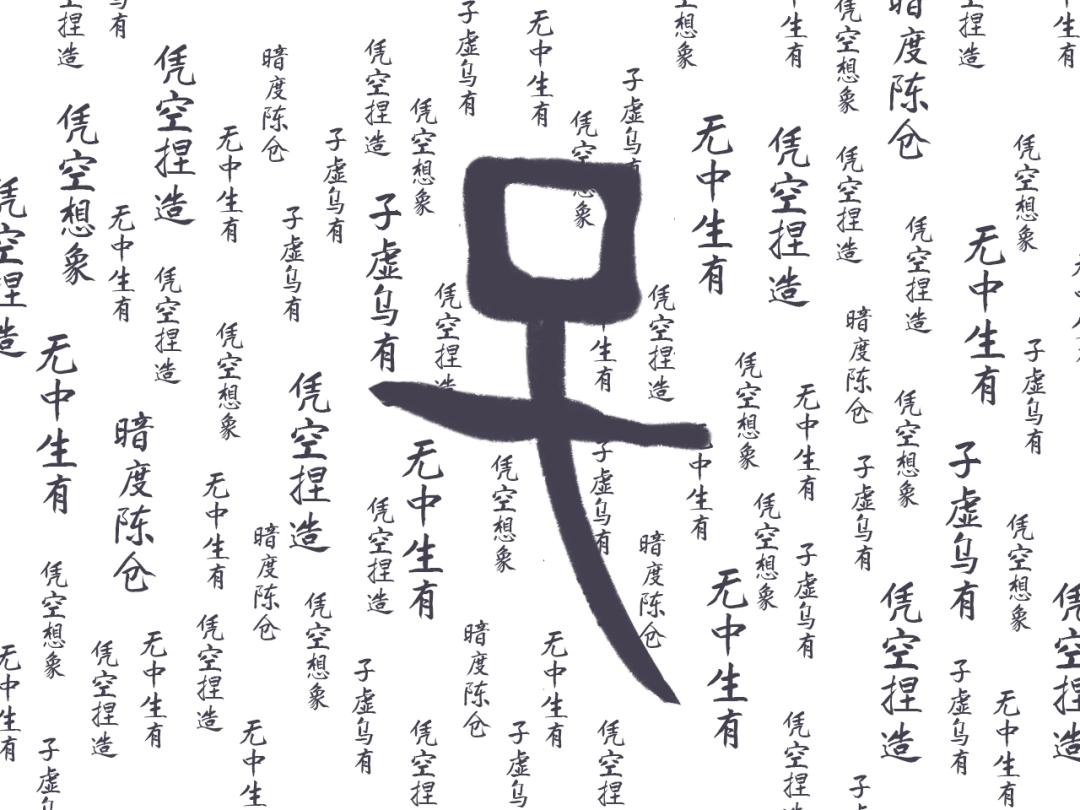 捏造
有
凭空捏造
暗度陈仓
凭空捏造
子虚乌有
无中生有
想象
中生有
空想象
暗度陈仓
捏造
生有
凭空想象
无中生有
子虚乌有
凭空想象
子虚乌有
凭空想象
无中生有
凭空捏造
凭空捏造
凭空想象
凭空捏造
无中生有
子虚乌有
子虚乌有
凭空捏造
无中生有
凭空捏造
凭空想象
凭空捏造
凭空捏造
生有
暗度陈仓
子虚乌有
无中生有
暗度陈仓
凭空捏造
无中生有
凭空想象
无中生有
凭空想象
子虚乌有
无中生有
暗度陈仓
凭空捏造
凭空想象
子虚乌有
中生有
暗度陈仓
凭空想象
子虚乌有
子虚乌有
子虚乌有
凭空想象
凭空想象
无中生有
凭空捏造
凭空捏造
无中生有
凭空捏造
凭空想象
子虚乌有
暗度陈仓
无中生有
无中生有
子虚乌有
无中生有
子虚
无中生
凭空捏
子虚乌
凭空捏
凭空捏
子